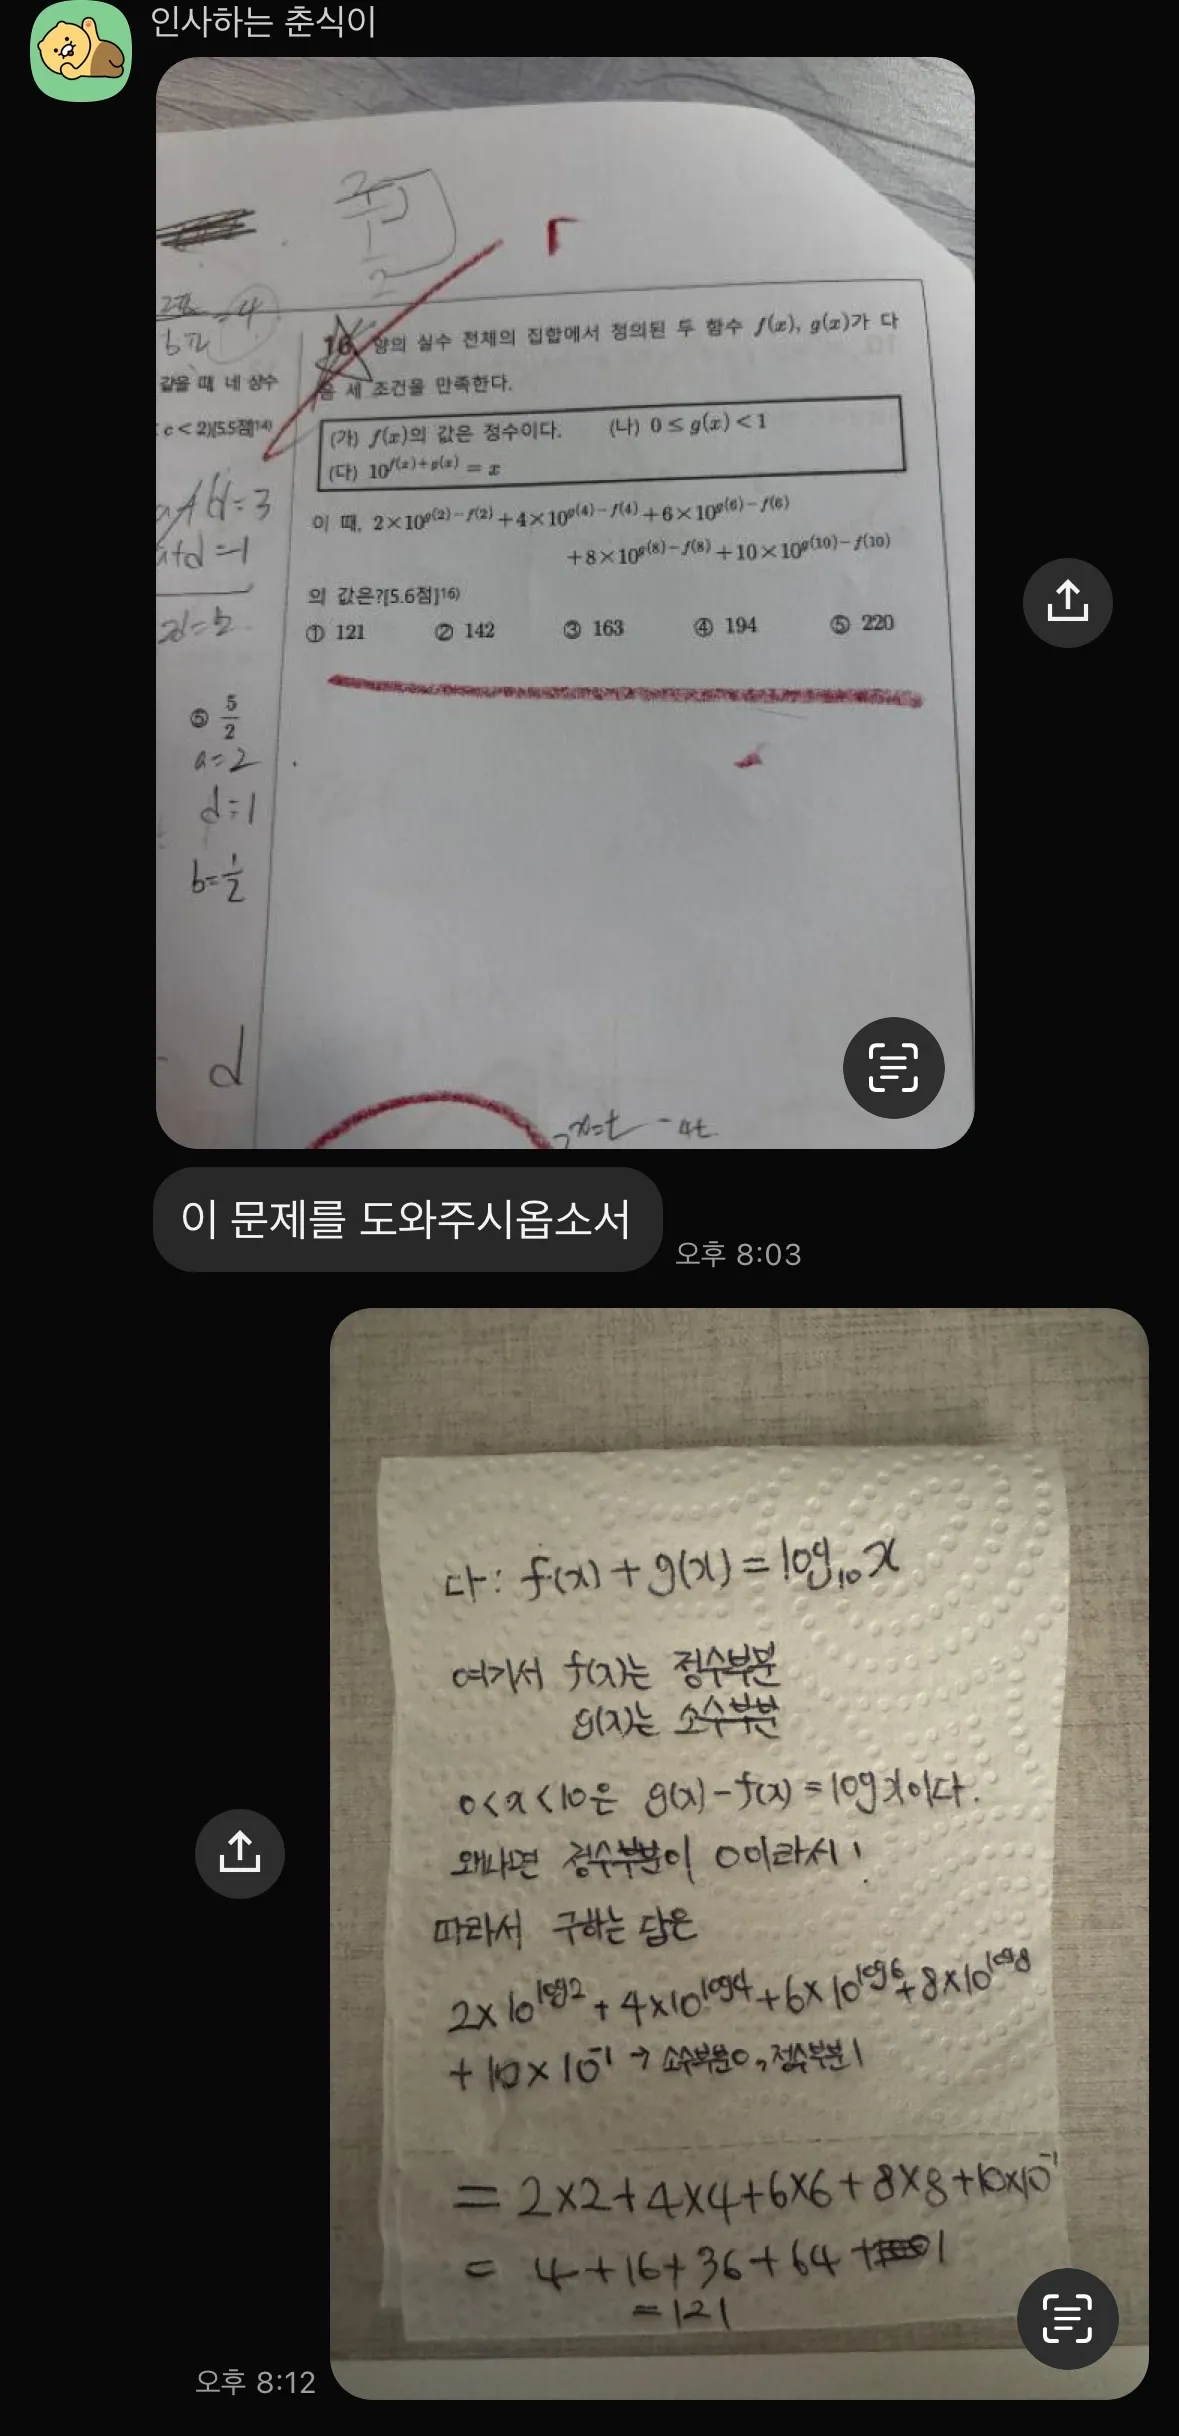 인사하는 춘식이
2
1
2
2π
6π
4
16. 양의 실수 전체의 집합에서 정의된 두 함수 f(x), g(x)가 다
음 세 조건을 만족한다.
(가) f(x)의 값은 정수이다. (나) 0 ≤ g(x) < 1
(다) 10^{f(x)+g(x)} = x
이 때, 2×10^{g(2)-f(2)}+4×10^{g(4)-f(4)}+6×10^{g(6)-f(6)}
+8×10^{g(8)-f(8)}+10×10^{g(10)-f(10)}
의 값은?[5.6점]16)
① 121 ② 142 ③ 163 ④ 194 ⑤ 220
같을 때, 네 상수
c < 2)[5.5점]14)
=3
+d=-1
⑤ 5/2
a=2
d=1
b=1/2
d
x=t -4t
이 문제를 도와주시옵소서
오후 8:03
다: f(x) + g(x) = log₁₀x
여기서 f(x)는 정수부분
g(x)는 소수부분
0<x<10은 g(x)-f(x)=logx이다.
왜냐면 정수부분이 0이라서!
따라서 구하는 답은
2×10^{log2}+4×10^{log4}+6×10^{log6}+8×10^{log8}
+10×10^{-1} → 소수부분0, 정수부분1
=2×2+4×4+6×6+8×8+10×10^{-1}
= 4+16+36+64+1
=121
오후 8:12